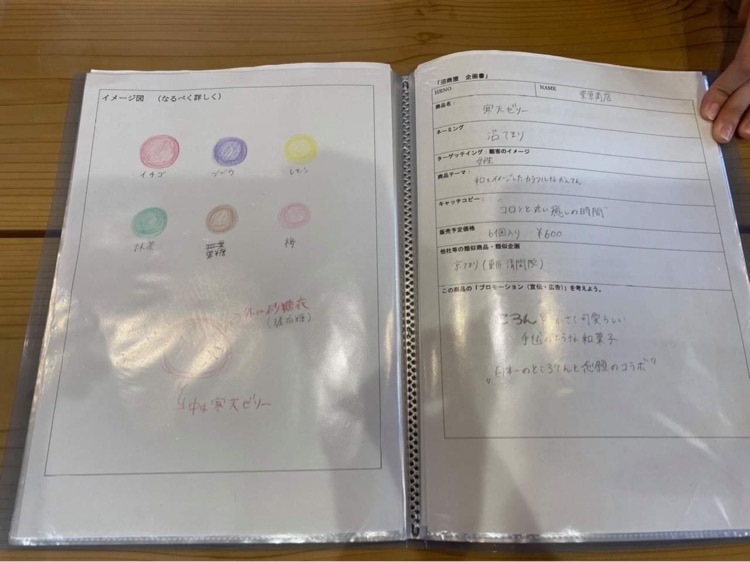 イメージ図 (なるべく詳しく)
イチゴ ブドウ レモン
抹茶 黒糖 梅
(確衣糖)
中は寒天ゼリー
「沼商屋 企画書」
HRNO NAME
商品名:
寒天ゼリー
ネーミング
沼てまり
ターゲッティング:顧客のイメージ
女性
商品テーマ:
和をイメージしたカラフルなかんてん
キャッチコピー:
コロンと丸い癒しの時間
販売予定価格
6個入り ¥600
他社等の類似商品・類似企画
京てまり
この商品の「プロモーション(宣伝・広告)」を考えよう。
ころんと小さく可愛らしい
手毬のような和菓子
"日本一のところてんとのコラボ"